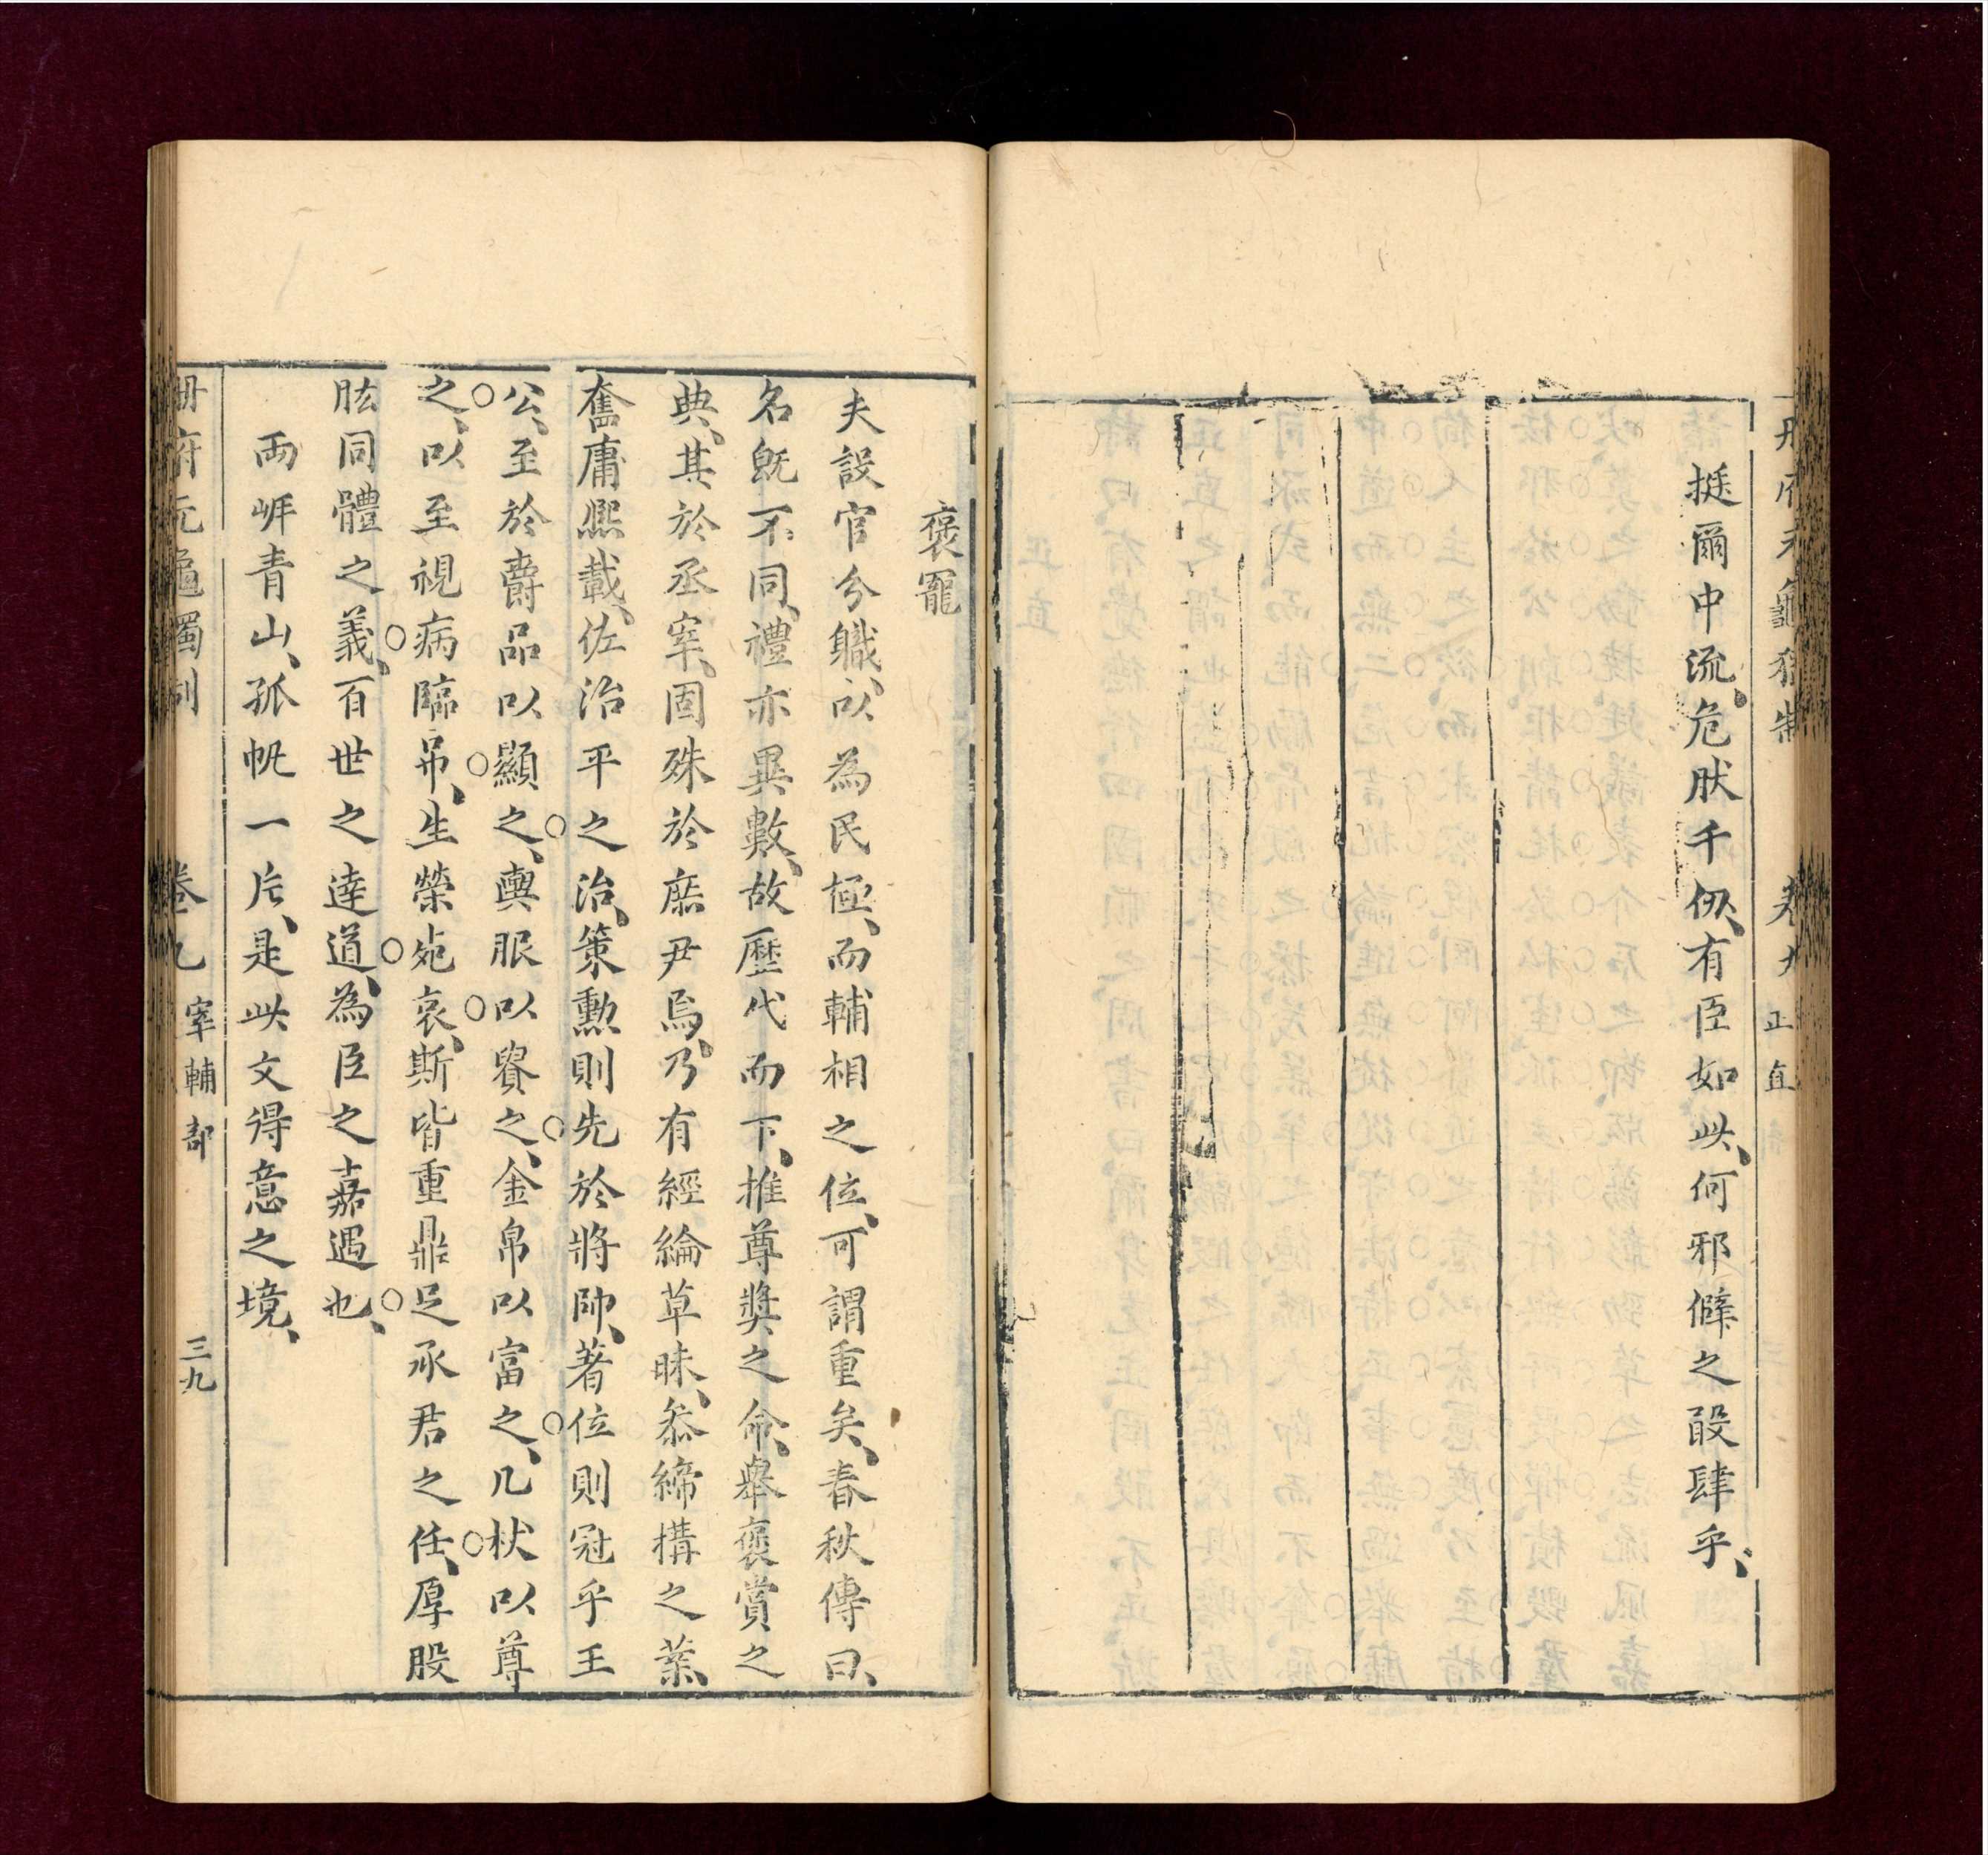 挺爾中流、危肰千仭、有臣如此、何邪僻之敢肆乎、
正直
褒寵
夫設官分職、以為民極、而輔相之位、可謂重矣、春秋傳曰、
名旣不同、禮亦異數、故歷代而下、推尊奬之命、舉褒賞之
典、其於丞宰、固殊於庶尹焉、乃有經綸草昧、叅締構之業、
奮庸熙載、佐治平之治、策勲則先於將帥、著位則冠乎王
公、至於爵品以顯之、輿服以賚之、金帛以富之、几杖以尊
之、以至視病臨弔、生榮死哀、斯皆重鼎足承君之任、厚股
肱同體之義、百世之達道、為臣之嘉遇也、
兩岸青山、孤帆一片、是此文得意之境、
宰輔部
三九